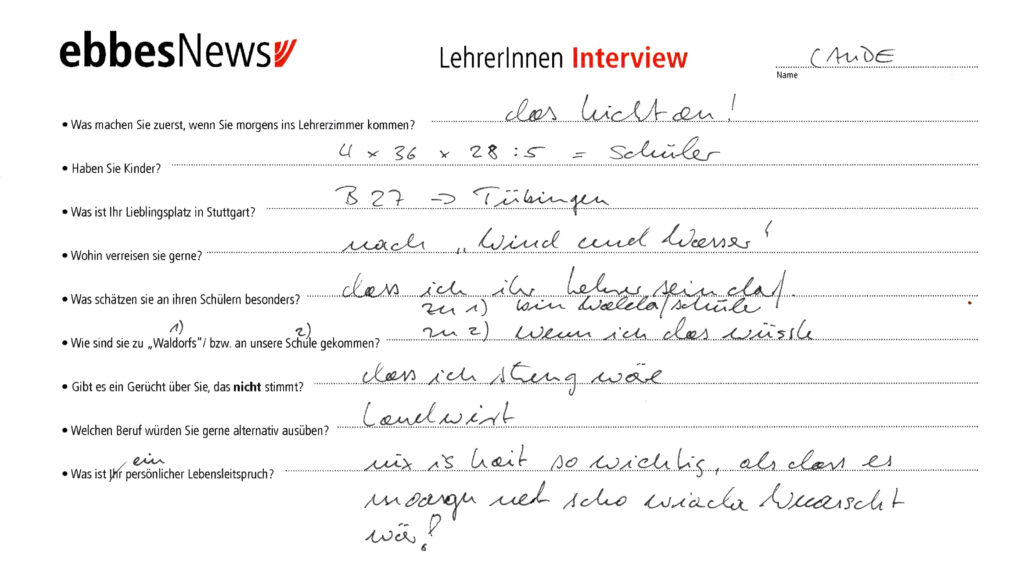 ebbesNews
LehrerInnen Interview
CAUDE
Name
• Was machen Sie zuerst, wenn Sie morgens ins Lehrerzimmer kommen? das Licht an!
• Haben Sie Kinder? 4 x 36 x 28 : 5 = Schüler
• Was ist Ihr Lieblingsplatz in Stuttgart? B 27 -> Tübingen
• Wohin verreisen sie gerne? nach „Wind und Wasser"
• Was schätzen sie an ihren Schülern besonders? dass ich ihr Lehrer sein darf.
zu 1) bin Waldorfschüle
1) 2)
• Wie sind sie zu „Waldorfs"/ bzw. an unsere Schule gekommen? zu 2) wenn ich das wüsste
• Gibt es ein Gerücht über Sie, das nicht stimmt? dass ich streng wär
• Welchen Beruf würden Sie gerne alternativ ausüben? Landwirt
ein
• Was ist Ihr persönlicher Lebensleitspruch? nix is hait so wichtig, als dass es
moargn net scho wiada wuarscht
wär!